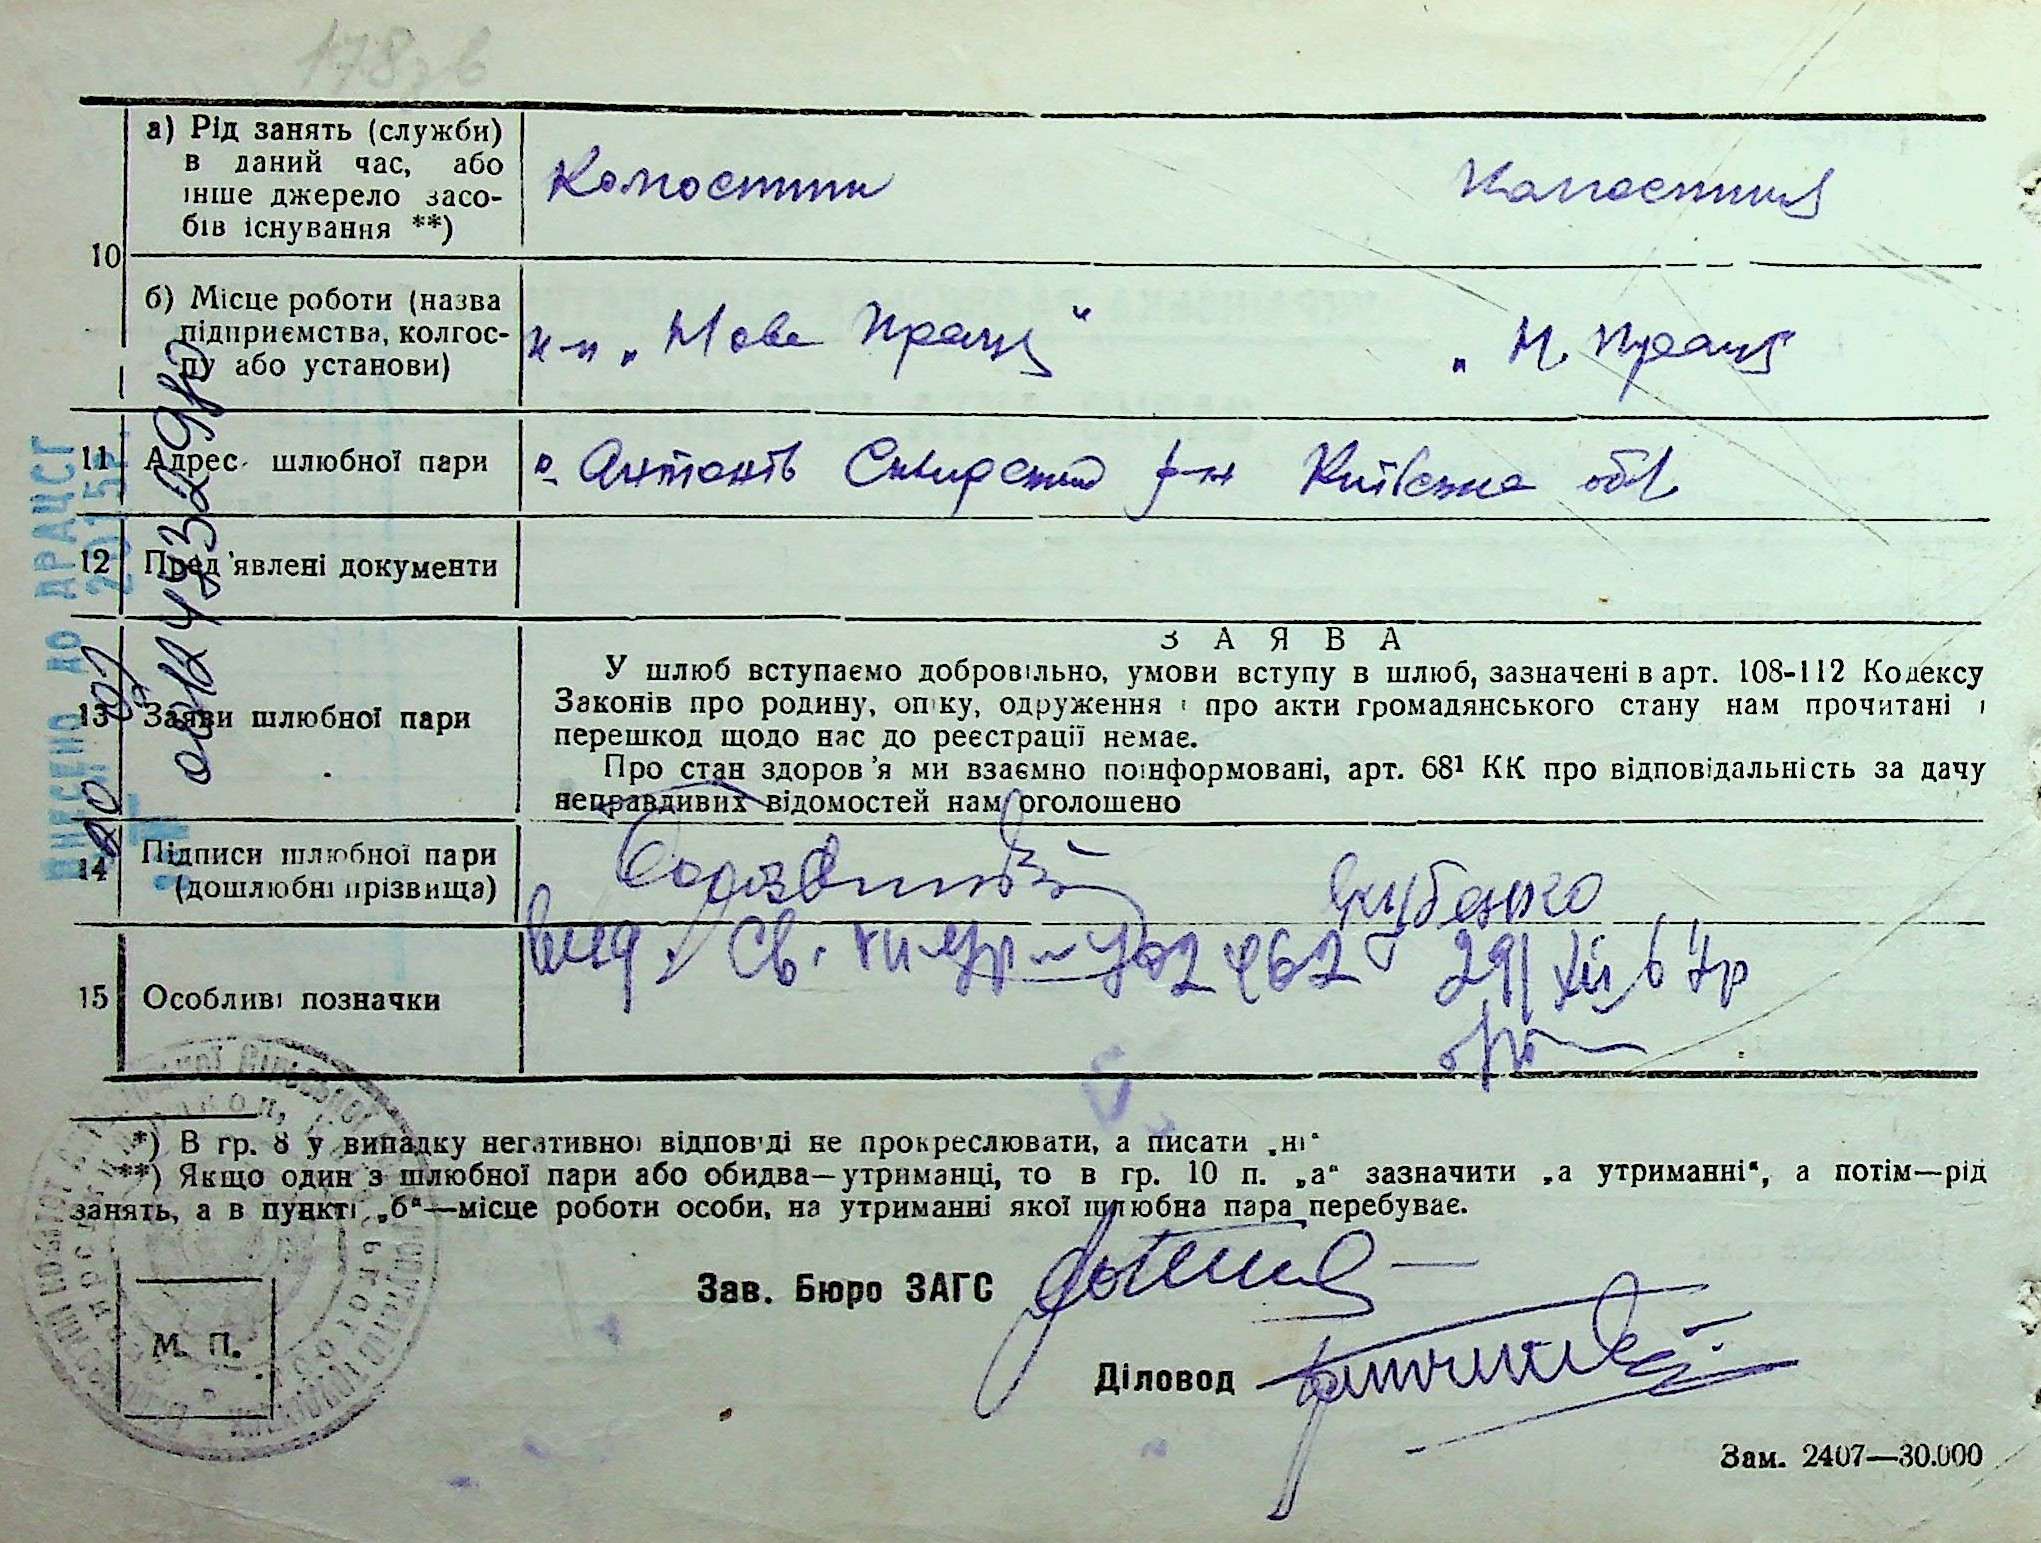 178зв
а) Рід занять (служби)
в даний час, або
інше джерело засо-
бів існування **)
Колгоспник
Колгоспниця
10
б) Місце роботи (назва
підприємства, колгос-
пу або установи)
к-п „Нова Праця"
„Н. Праця
11 Адрес шлюбної пари
с. Антонів Сквирський р-н Київська обл.
12 Пред'явлені документи
13 Заяви шлюбної пари
ЗАЯВА
У шлюб вступаємо добровільно, умови вступу в шлюб, зазначені в арт. 108-112 Кодексу
Законів про родину, опіку, одруження і про акти громадянського стану нам прочитані і
перешкод щодо нас до реєстрації немає.
Про стан здоров'я ми взаємно поінформовані, арт. 68¹ КК про відповідальність за дачу
неправдивих відомостей нам оголошено
14 Підписи шлюбної пари
(дошлюбні прізвища)
Якубенко
15 Особливі позначки
вид. Св.
29/XII
ВНЕСЕНО ДО ДРАЦСГ
2015р.
*) В гр. 8 у випадку негативної відповіді не прокреслювати, а писати „ні"
**) Якщо один з шлюбної пари або обидва—утриманці, то в гр. 10 п. „а" зазначити „а утриманні", а потім—рід
занять, а в пункті „б"—місце роботи особи, на утриманні якої шлюбна пара перебуває.
Зав. Бюро ЗАГС
М. П.
Діловод
Зам. 2407—30.000